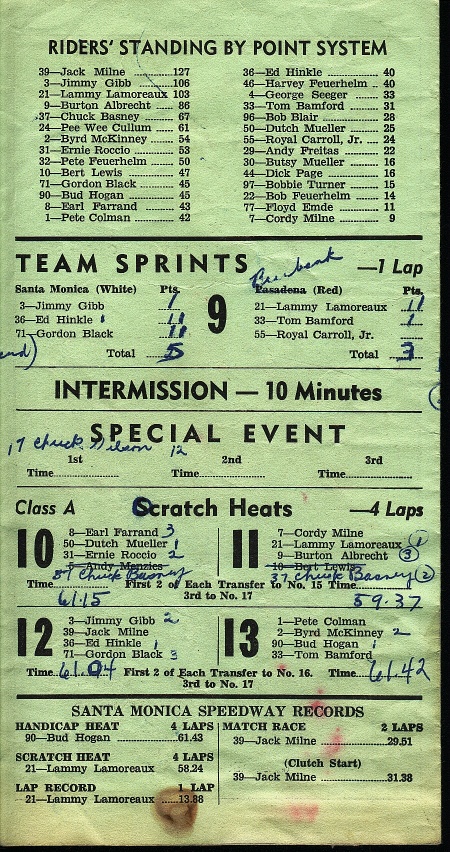 RIDERS' STANDING BY POINT SYSTEM
39—Jack Milne ............127
3—Jimmy Gibb ............106
21—Lammy Lamoreaux 103
9—Burton Albrecht ...... 86
37—Chuck Basney ......... 67
24—Pee Wee Cullum ..... 61
2—Byrd McKinney ........ 54
31—Ernie Roccio ............ 53
32—Pete Feuerhelm ....... 50
10—Bert Lewis ............... 47
71—Gordon Black .......... 45
90—Bud Hogan .............. 45
8—Earl Farrand ............ 43
1—Pete Colman ............ 42
36—Ed Hinkle ............... 40
46—Harvey Feuerhelm .. 40
4—George Seeger ......... 33
33—Tom Bamford .......... 31
96—Bob Blair ................ 28
50—Dutch Mueller ......... 25
55—Royal Carroll, Jr. .... 24
29—Andy Freitas ........... 22
30—Butsy Mueller .......... 16
44—Dick Page ............... 16
97—Bobbie Turner ......... 15
22—Bob Feuerhelm ........ 14
77—Floyd Emde ............. 11
7—Cordy Milne ............. 9
TEAM SPRINTS —1 Lap
Burbank
Santa Monica (White) Pts.
3—Jimmy Gibb 1
36—Ed Hinkle 11
71—Gordon Black 11
Total 5
9
Pasadena (Red) Pts.
21—Lammy Lamoreaux 11
33—Tom Bamford 1
55—Royal Carroll, Jr.
Total 3
INTERMISSION — 10 Minutes
SPECIAL EVENT
17 Chuck Wilson 12
1st 2nd 3rd
Time............ Time............ Time............
Class A Scratch Heats —4 Laps
10
8—Earl Farrand 3
50—Dutch Mueller 1
31—Ernie Roccio 2
5—Andy Menzies
37 Chuck Basney
11
7—Cordy Milne
21—Lammy Lamoreaux 1
9—Burton Albrecht 3
10—Bert Lewis
37 Chuck Basney 2
Time........ First 2 of Each Transfer to No. 15 Time........
3rd to No. 17
61.15 59.37
12
3—Jimmy Gibb 2
39—Jack Milne
36—Ed Hinkle 1
71—Gordon Black 3
13
1—Pete Colman
2—Byrd McKinney 2
90—Bud Hogan 1
33—Tom Bamford
Time 61.04 First 2 of Each Transfer to No. 16. Time 61.42
3rd to No. 17
SANTA MONICA SPEEDWAY RECORDS
HANDICAP HEAT 4 LAPS
90—Bud Hogan ..............61.43
SCRATCH HEAT 4 LAPS
21—Lammy Lamoreaux 58.24
LAP RECORD 1 LAP
21—Lammy Lamoreaux .....13.88
MATCH RACE 2 LAPS
39—Jack Milne ................29.51
(Clutch Start)
39—Jack Milne ................31.38